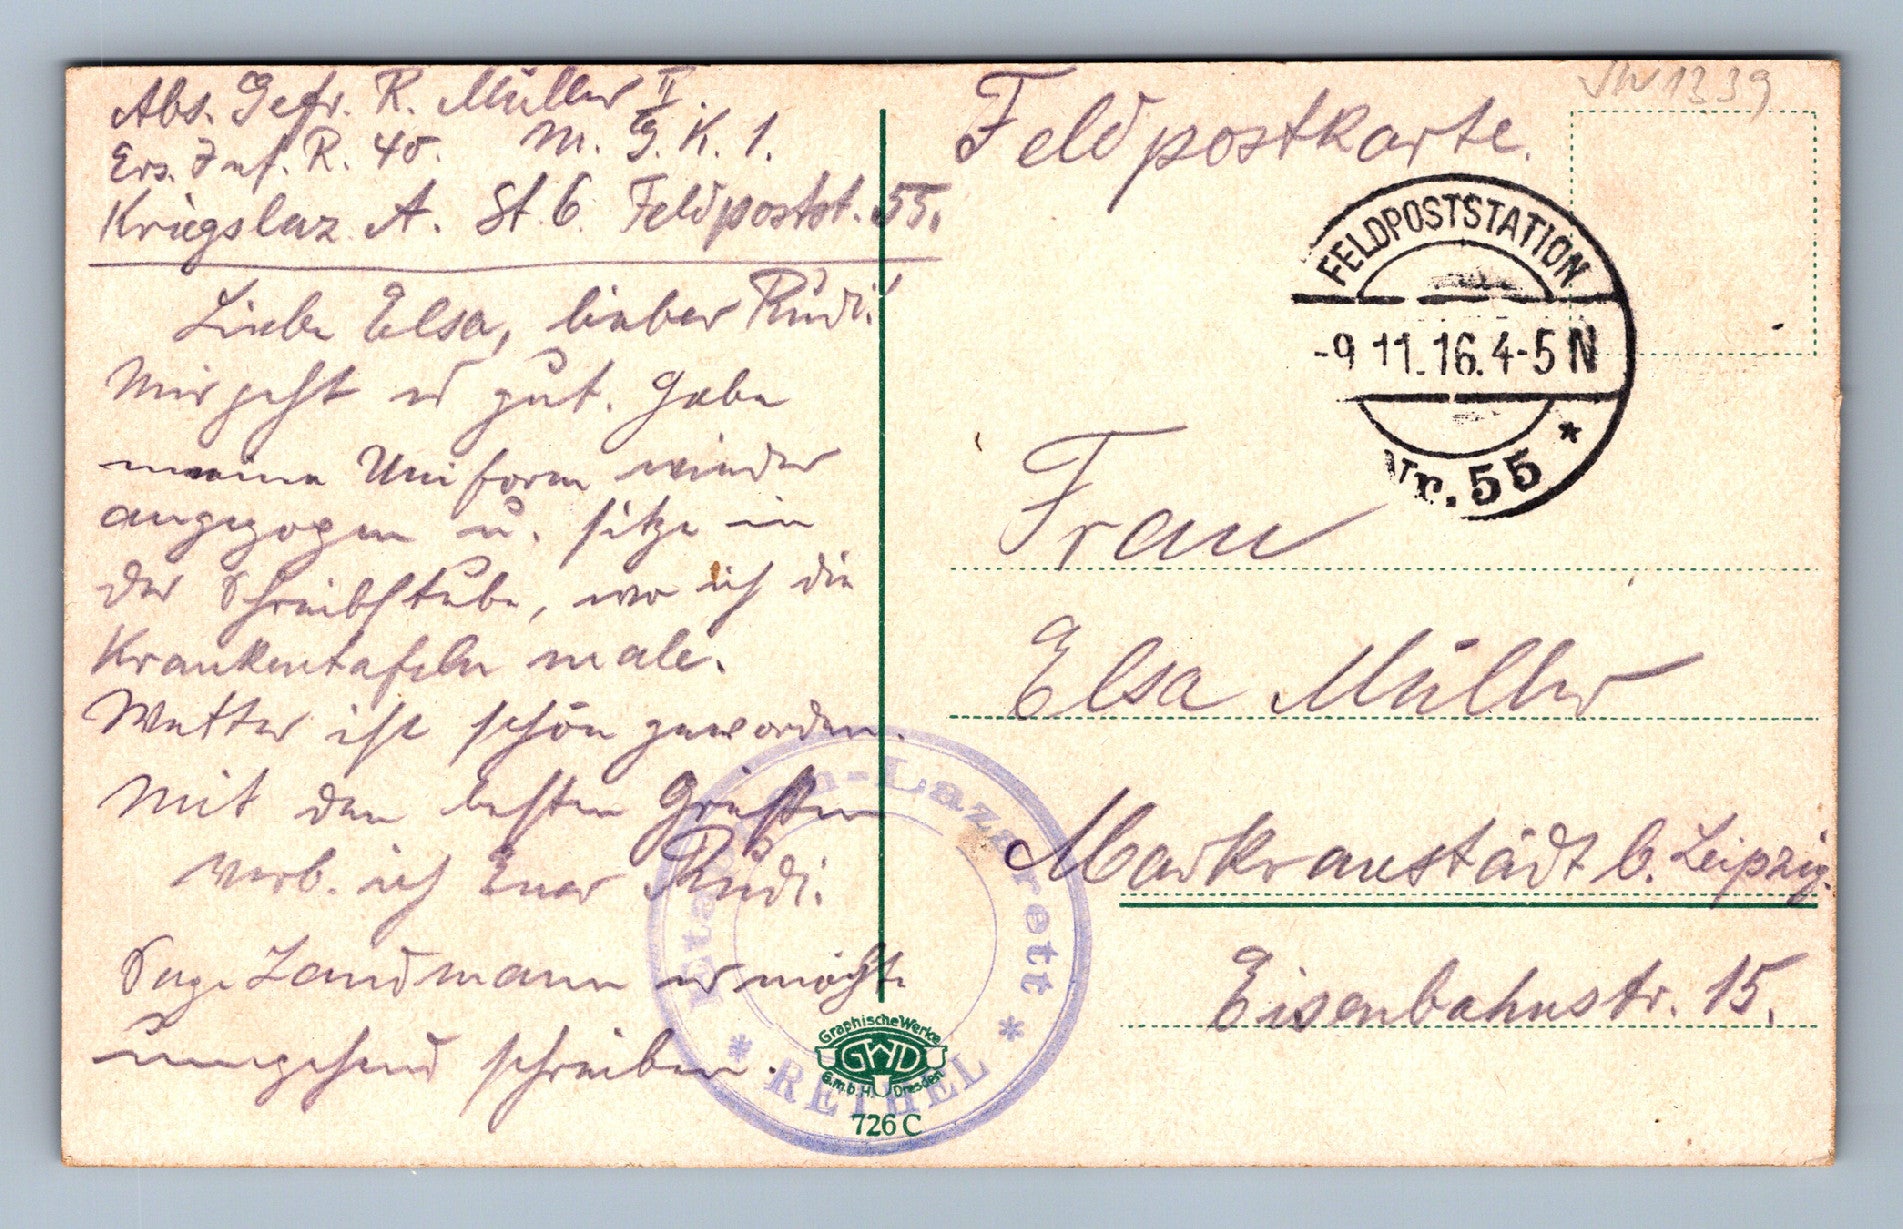 Abs. Gefr. R. Müller II.
Ers. Inf. R. 40. M. G. K. 1.
Kriegslaz. A. St. 6. Feldpostst. 55.
Liebe Elsa, lieber Rudi!
Mir geht es gut. Habe
meine Uniform wieder
angezogen u. sitze in
der Schreibstube, wo ich die
Krankentafeln male.
Wetter ist schön geworden.
Mit den besten Grüßen
verb. ich Euer Rudi.
Sage Landmann er möchte
umgehend schreiben.
JW1339
Feldpostkarte.
FELDPOSTSTATION
-9 11.16.4-5 N
Nr. 55 *
Frau
Elsa Müller
Markranstädt b. Leipzig.
Eisenbahnstr. 15.
Etappen-Lazarett
* RETHEL *
Graphische Werke
GWD
G.m.b.H. Dresden
726 C